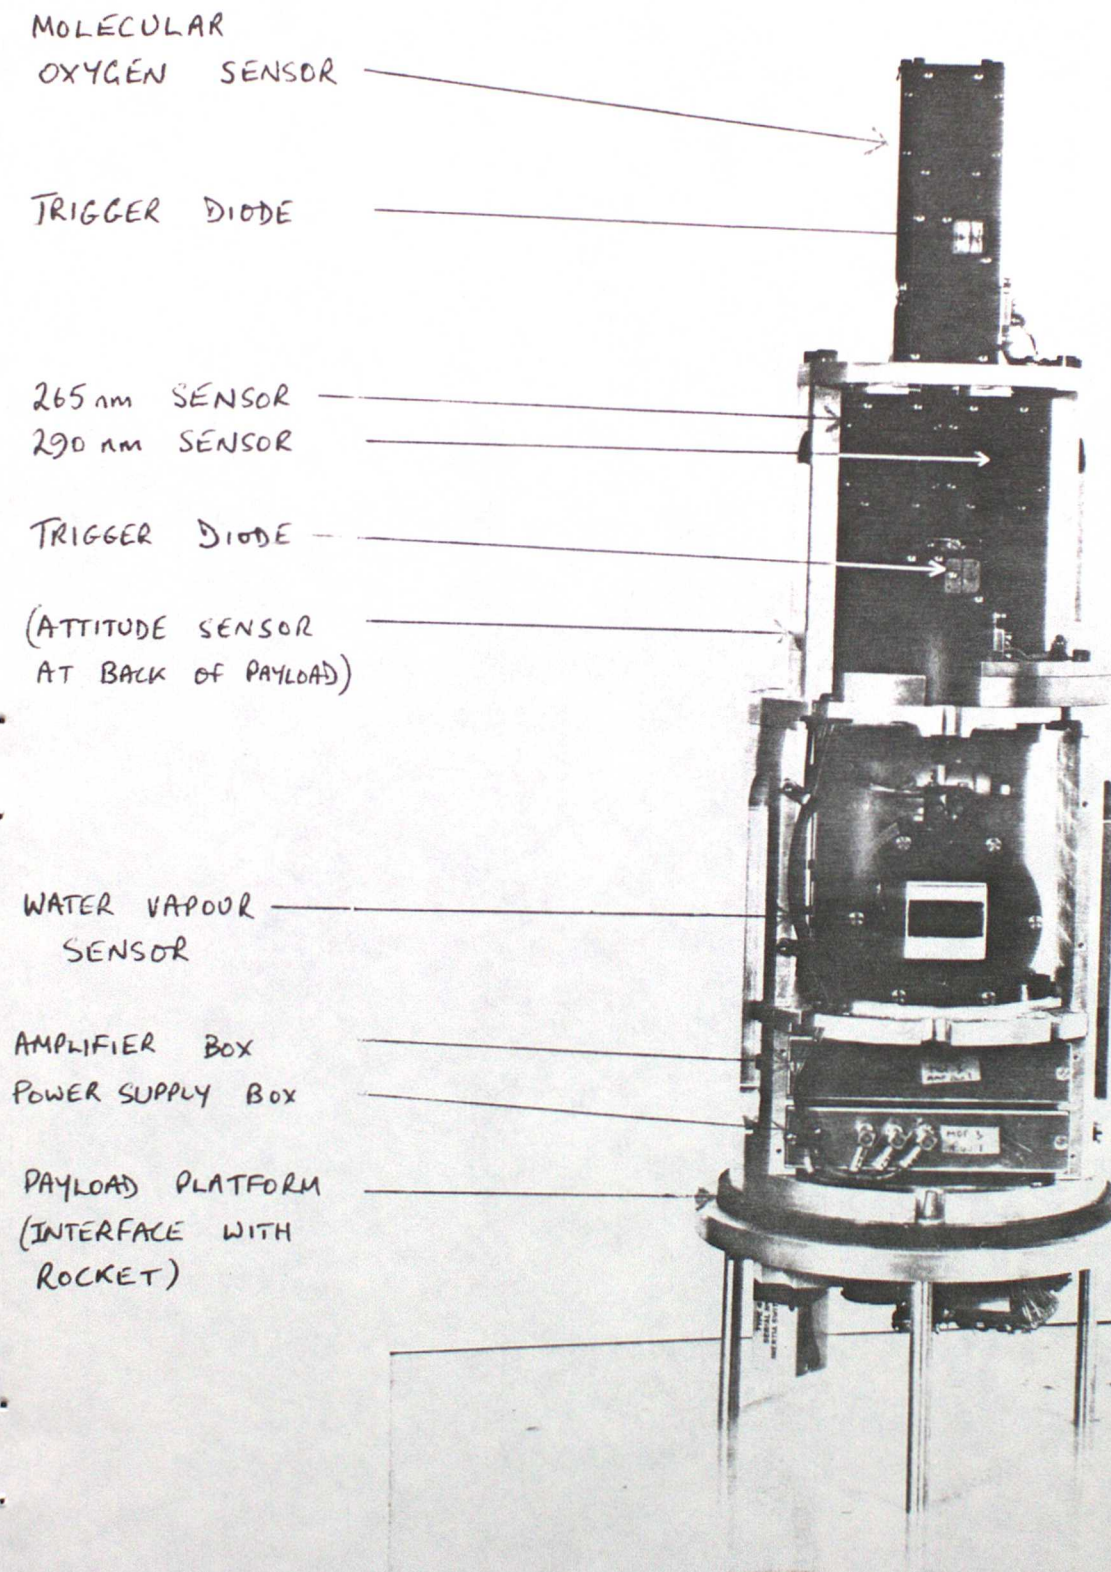 MOLECULAR
OXYGEN SENSOR
TRIGGER DIODE
265 nm SENSOR
290 nm SENSOR
TRIGGER DIODE
(ATTITUDE SENSOR
AT BACK OF PAYLOAD)
WATER VAPOUR
SENSOR
AMPLIFIER BOX
POWER SUPPLY BOX
PAYLOAD PLATFORM
(INTERFACE WITH
ROCKET)